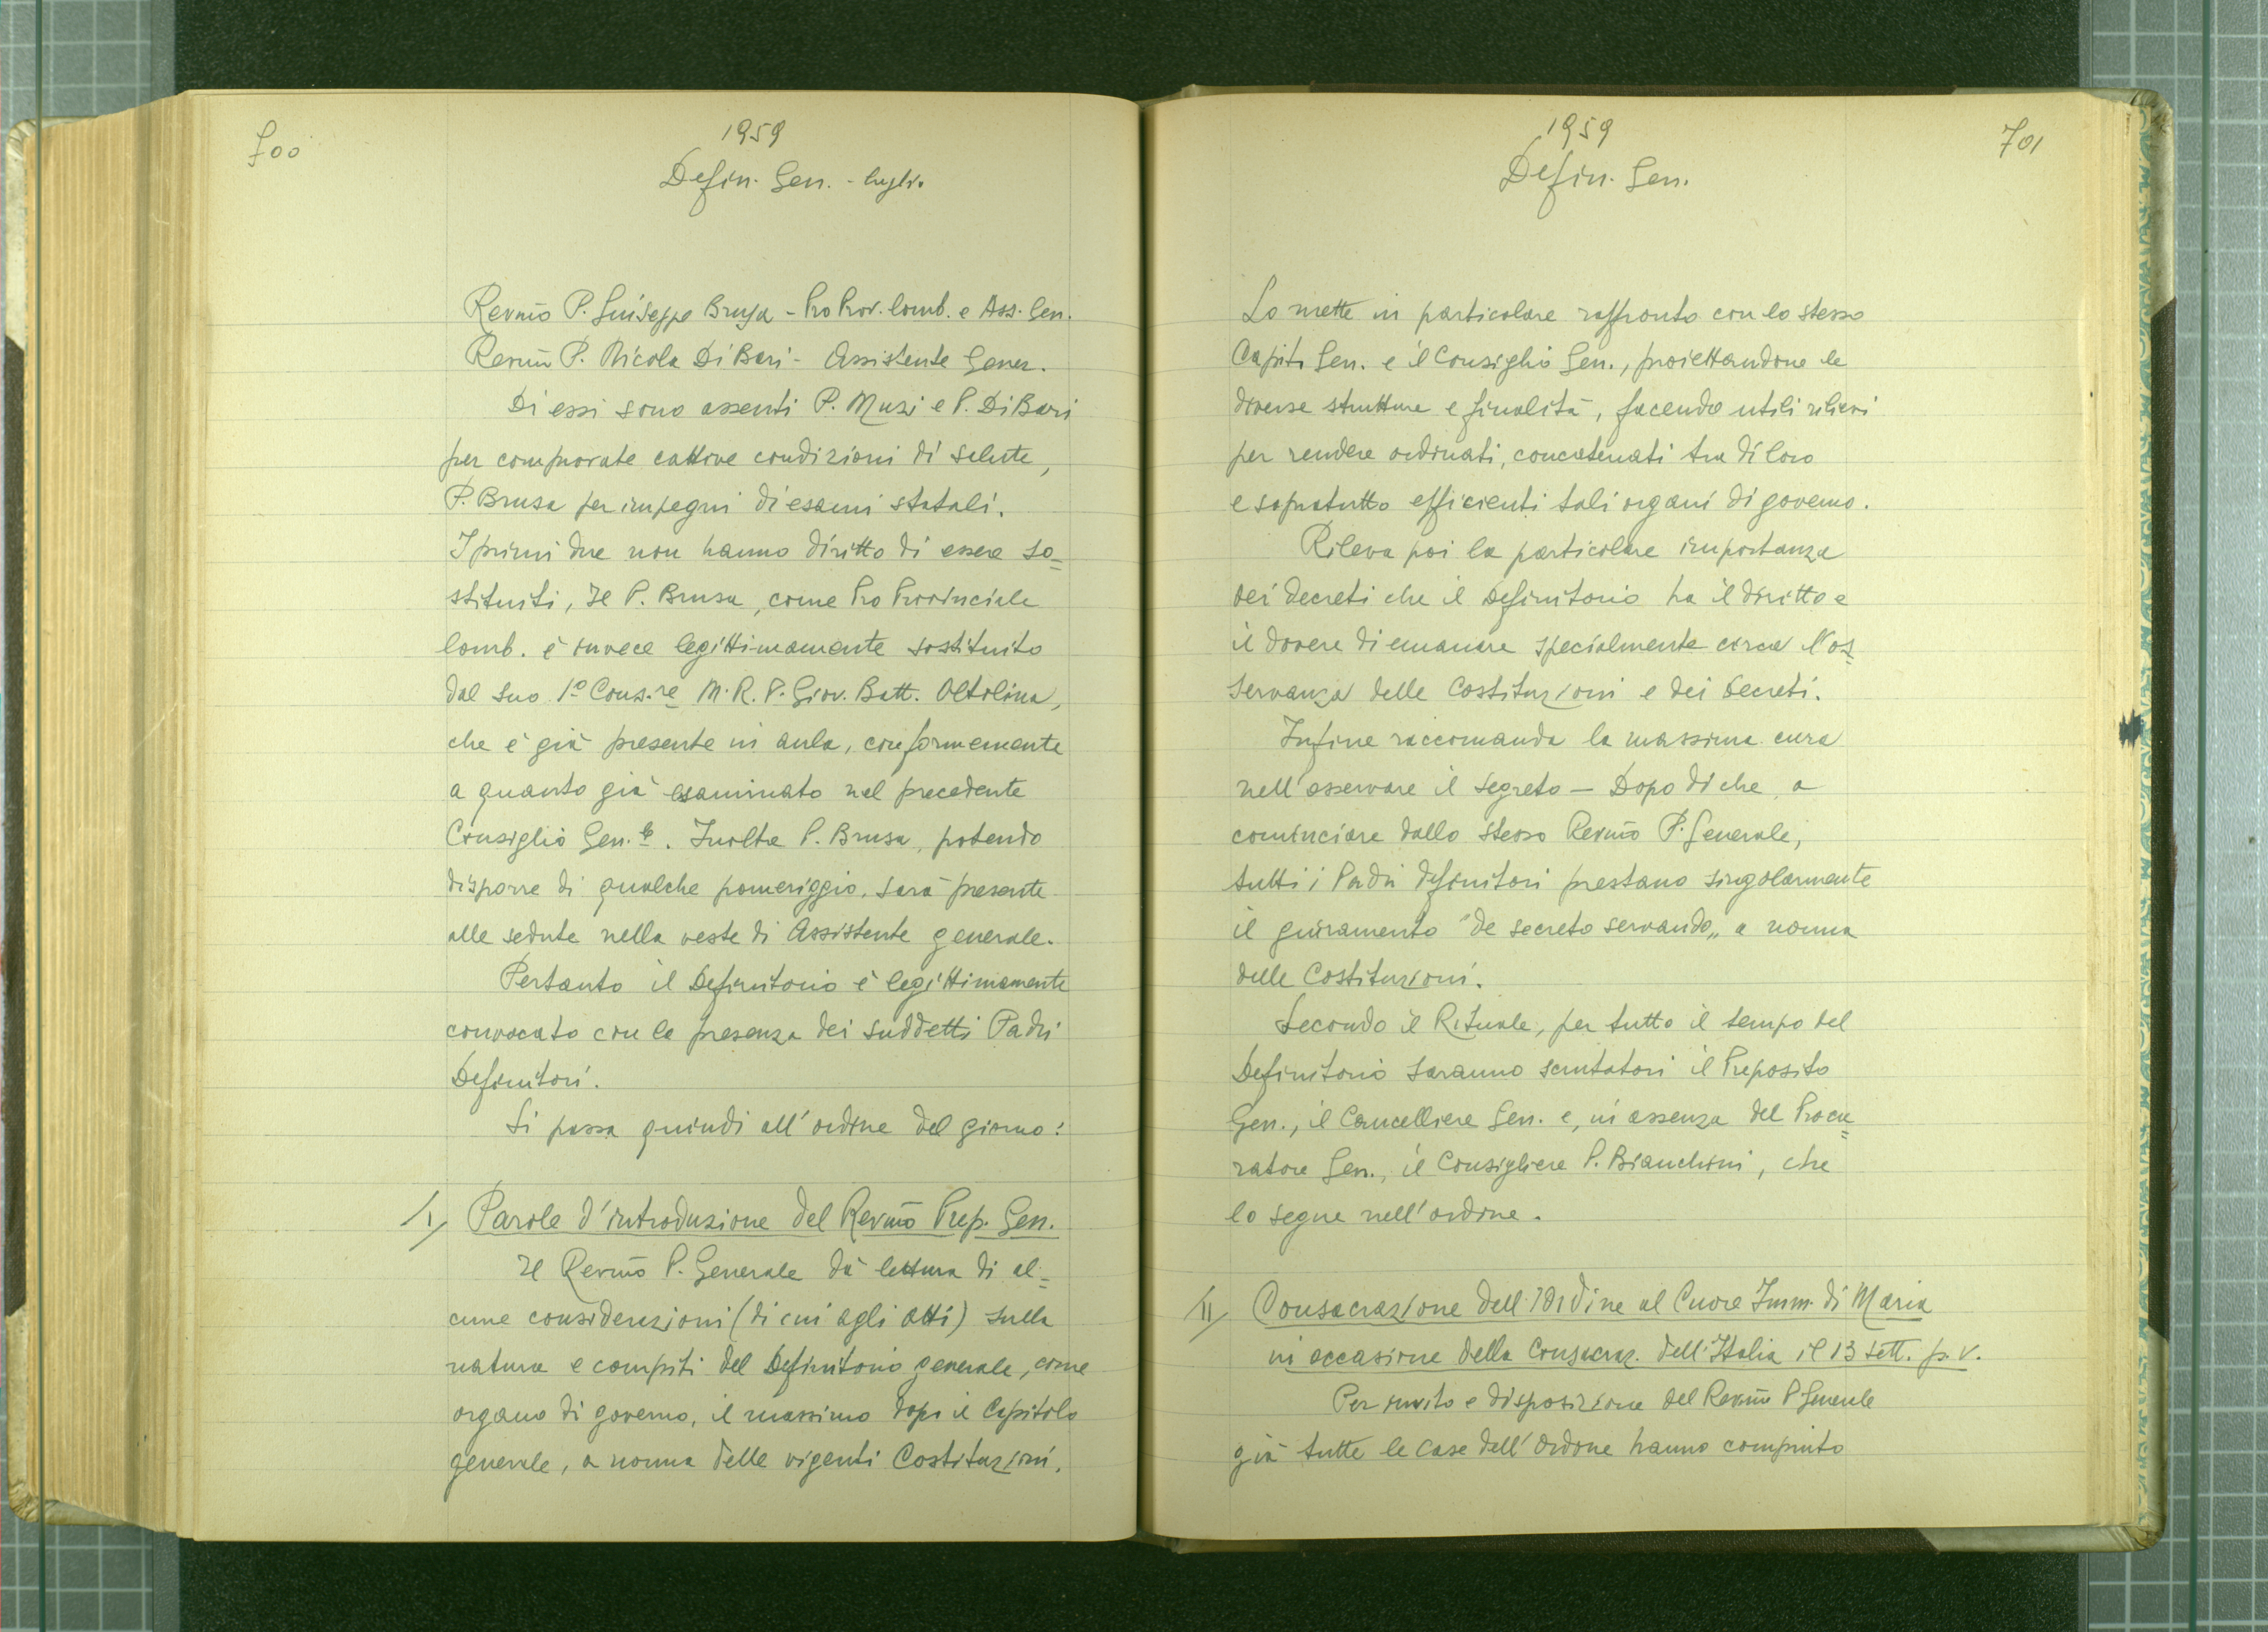 700
1959
Defin. Gen. - luglio
Revmo P. Giuseppe Brusa - Pro Prov. lomb. e Ass. Gen.
Revmo P. Nicola Di Bari - Assistente Gener.
Di essi sono assenti P. Muzi e P. Di Bari
per comprovate cattive condizioni di salute,
P. Brusa per impegni di esami statali.
I primi due non hanno diritto di essere so=
stituiti, Il P. Brusa, come Pro Provinciale
lomb. è invece legittimamente sostituito
dal suo 1º Cons.re M. R. P. Giov. Batt. Oltolina,
che è già presente in aula, conformemente
a quanto già esaminato nel precedente
Consiglio Gen.le. Inoltre P. Brusa, potendo
disporre di qualche pomeriggio, sarà presente
alle sedute nella veste di Assistente generale.
Pertanto il Definitorio è legittimamente
convocato con la presenza dei suddetti Padri
Definitori.
Si passa quindi all'ordine del giorno:
I/ Parole d'introduzione del Revmo Prep. Gen.
Il Revmo P. Generale dà lettura di al=
cune considerazioni (di cui agli atti) sulla
natura e compiti del Definitorio generale, come
organo di governo, il massimo dopo il Capitolo
generale, a norma delle vigenti Costituzioni.
1959
Defin. Gen.
701
Lo mette in particolare raffronto con lo stesso
Capit. Gen. e il Consiglio Gen., proiettandone le
diverse strutture e finalità, facendo utili rilievi
per rendere ordinati, concatenati tra di loro
e sopratutto efficienti tali organi di governo.
Rileva poi la particolare importanza
dei decreti che il Definitorio ha il diritto e
il dovere di emanare specialmente circa l'os=
servanza delle Costituzioni e dei Decreti.
Infine raccomanda la massima cura
nell'osservare il segreto — Dopo di che, a
cominciare dallo stesso Revmo P. Generale,
tutti i Padri definitori prestano singolarmente
il giuramento "de secreto servando„ a norma
delle Costituzioni.
Secondo il Rituale, per tutto il tempo del
Definitorio saranno scrutatori il Preposito
Gen., il Cancelliere Gen. e, in assenza del Procu=
ratore Gen., il Consigliere P. Bianchini, che
lo segue nell'ordine.
II/ Consacrazione dell'Ordine al Cuore Imm. di Maria
in occasione della Consacraz. dell'Italia il 13 Sett. p. v.
Per invito e disposizione del Revmo P. Generale
già tutte le case dell'Ordine hanno compiuto